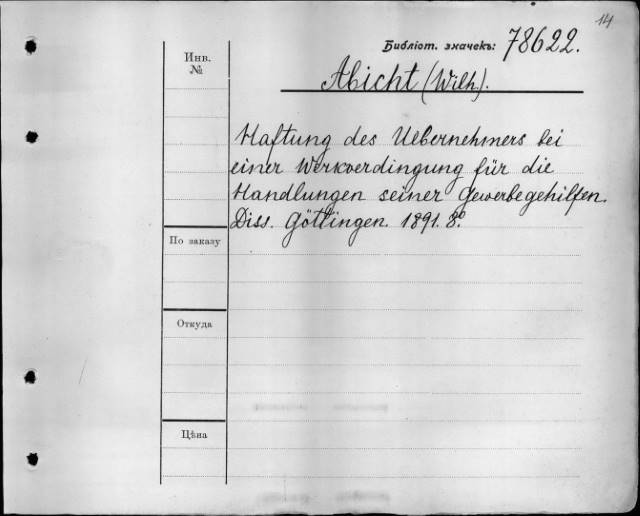 14
Библіот. значекъ: 78622.
Инв.
№
Abicht (Wilh).
Haftung des Uebernehmers bei
einer Werkverdingung für die
Handlungen seiner Gewerbegehilfen.
Diss. Göttingen. 1891. 8º.
По заказу
Откуда
Цѣна